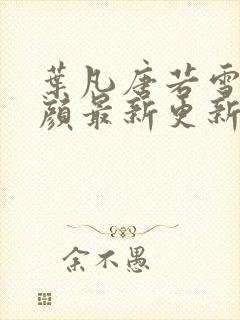 葉凡唐若雪
顏最新更新
余不愚